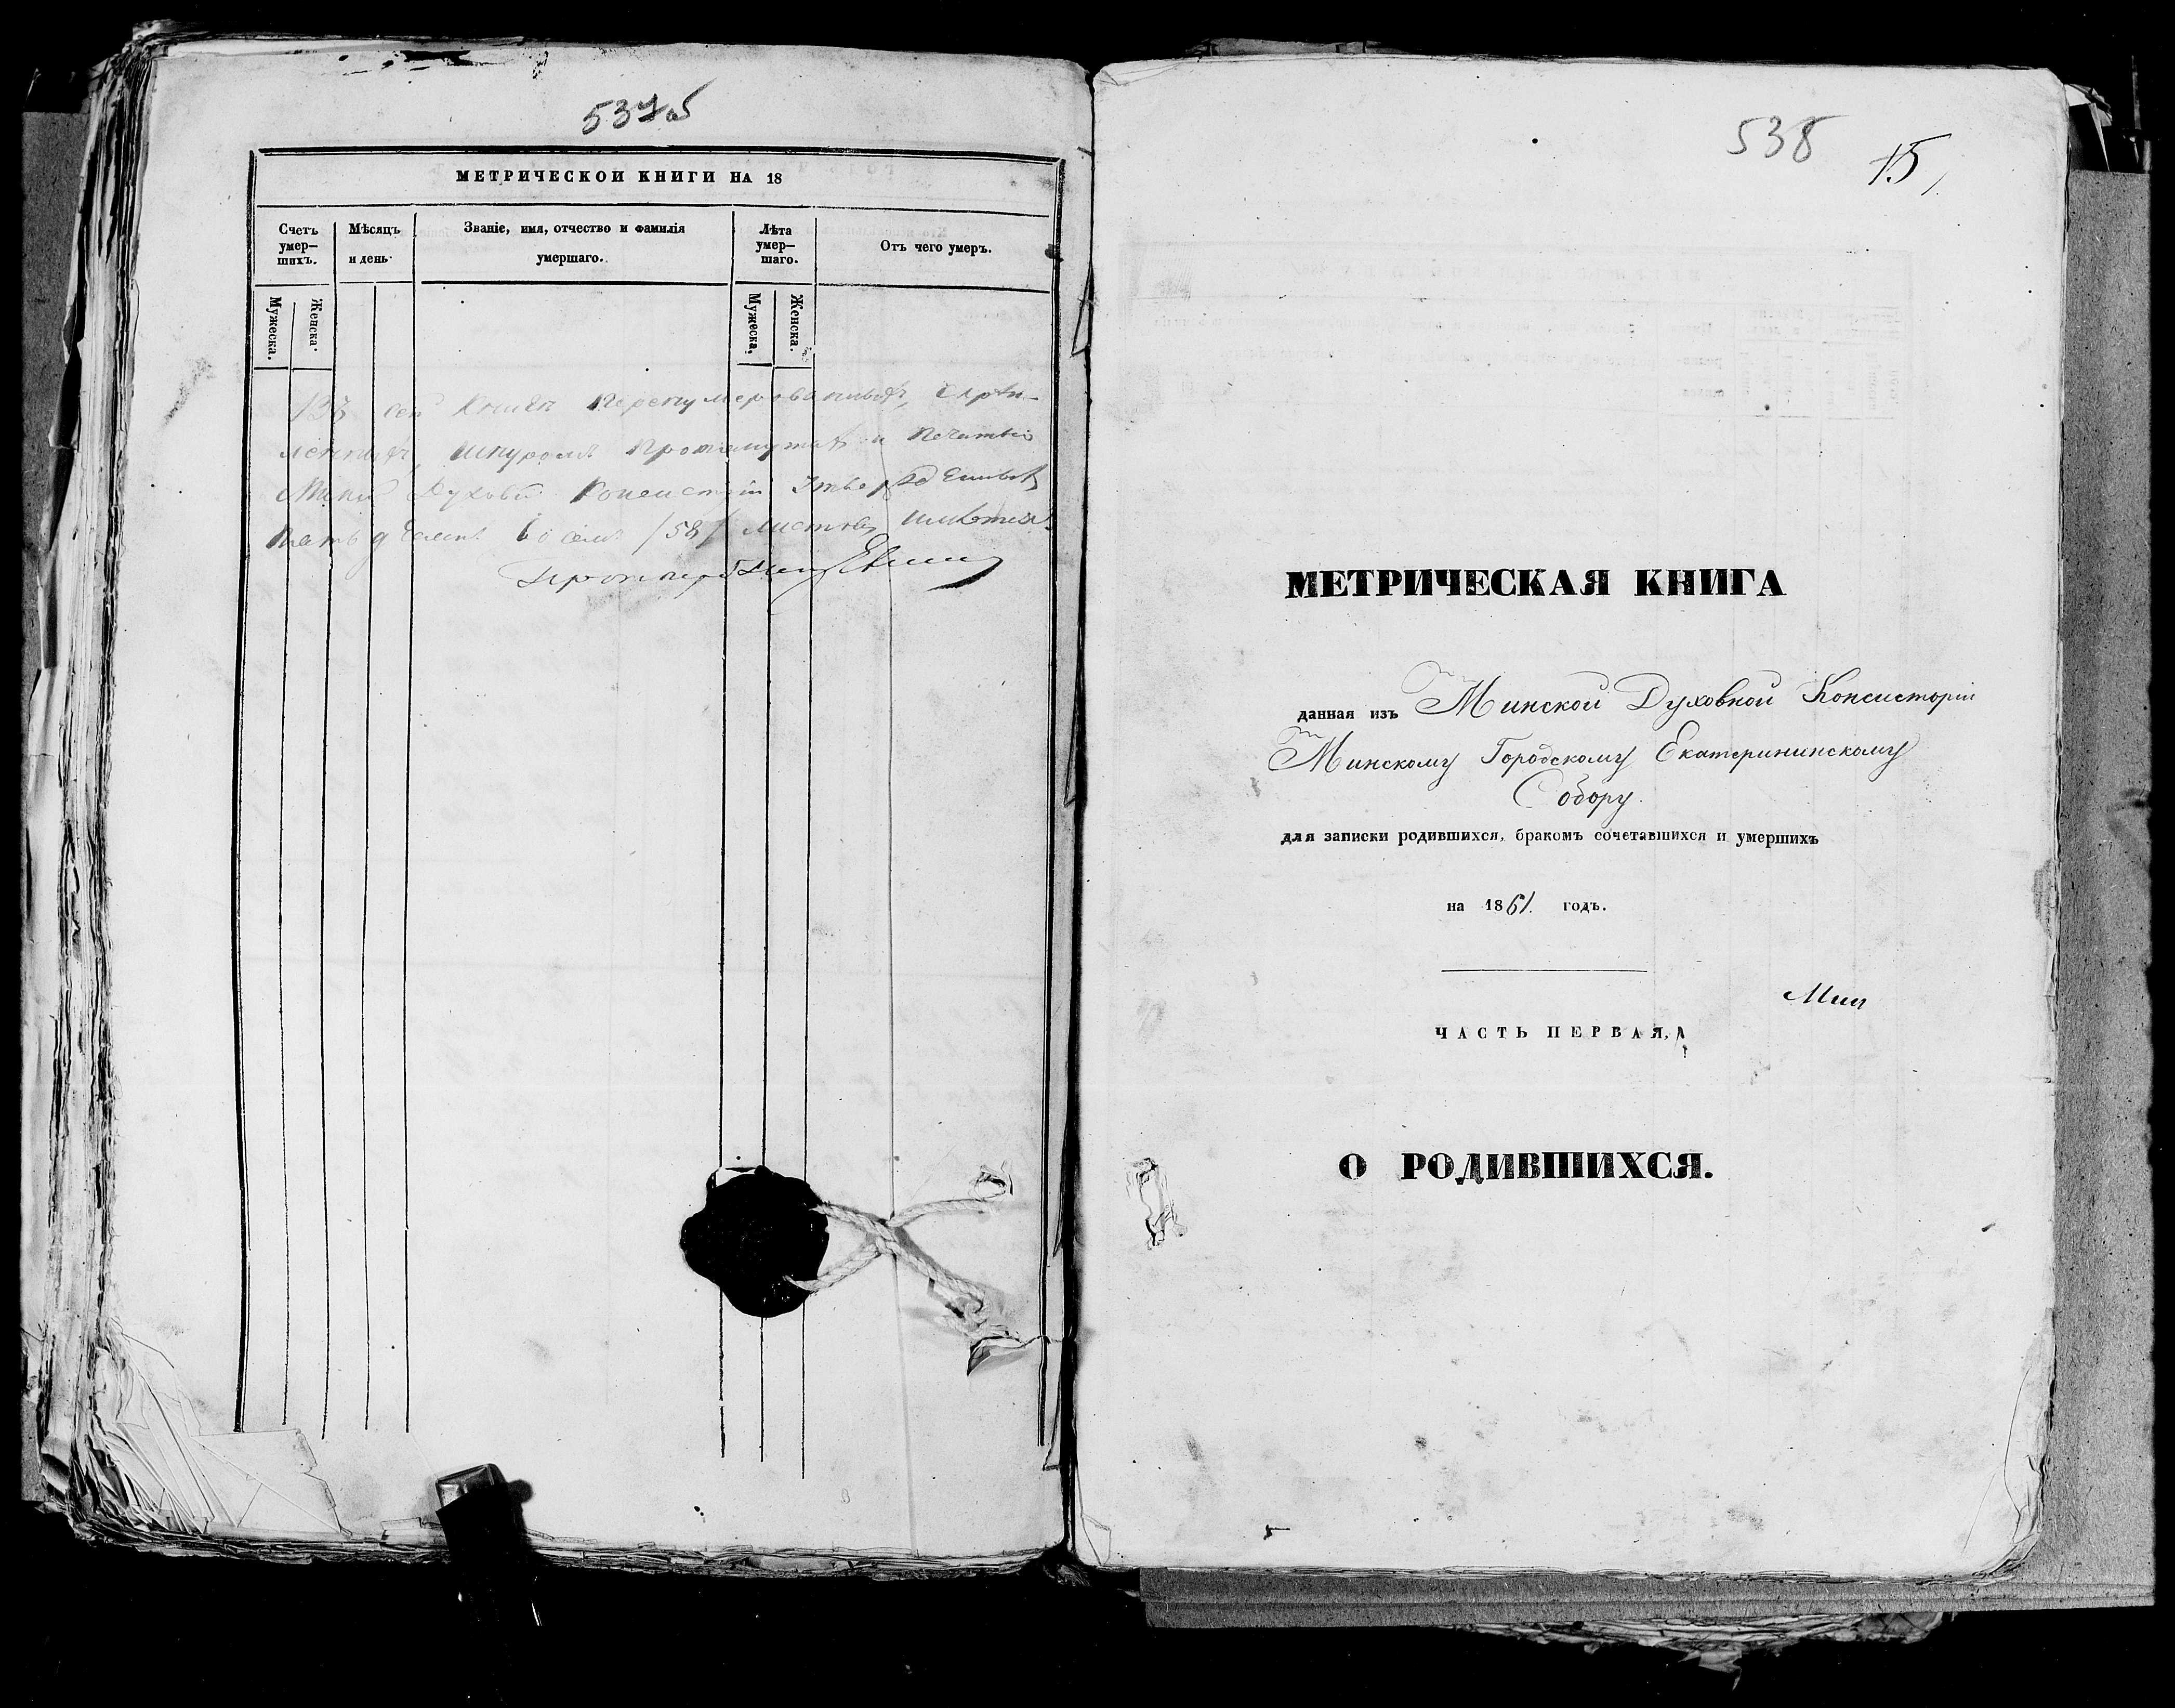 537об
МЕТРИЧЕСКОЙ КНИГИ НА 18
Счетъ умер-шихъ.
Мѣсяцъ и день.
Званіе, имя, отчество и фамилія умершаго.
Лѣта умер-шаго.
Отъ чего умеръ.
Мужеска.
Женска.
Мужеска,
Женска.
сей Книгѣ перенумерованныхъ, скрѣп-
ленныхъ, шнуромъ и печатью
Духовн Консисторіи
пятьдесятъ восемь /58/ листовъ имѣется.
538
15
МЕТРИЧЕСКАЯ КНИГА
данная изъ Минской Духовной Консисторіи
Минскому Городскому Екатерининскому
Собору.
для записки родившихся, бракомъ сочетавшихся и умершихъ
на 1861. годъ.
ЧАСТЬ ПЕРВАЯ,
О РОДИВШИХСЯ.